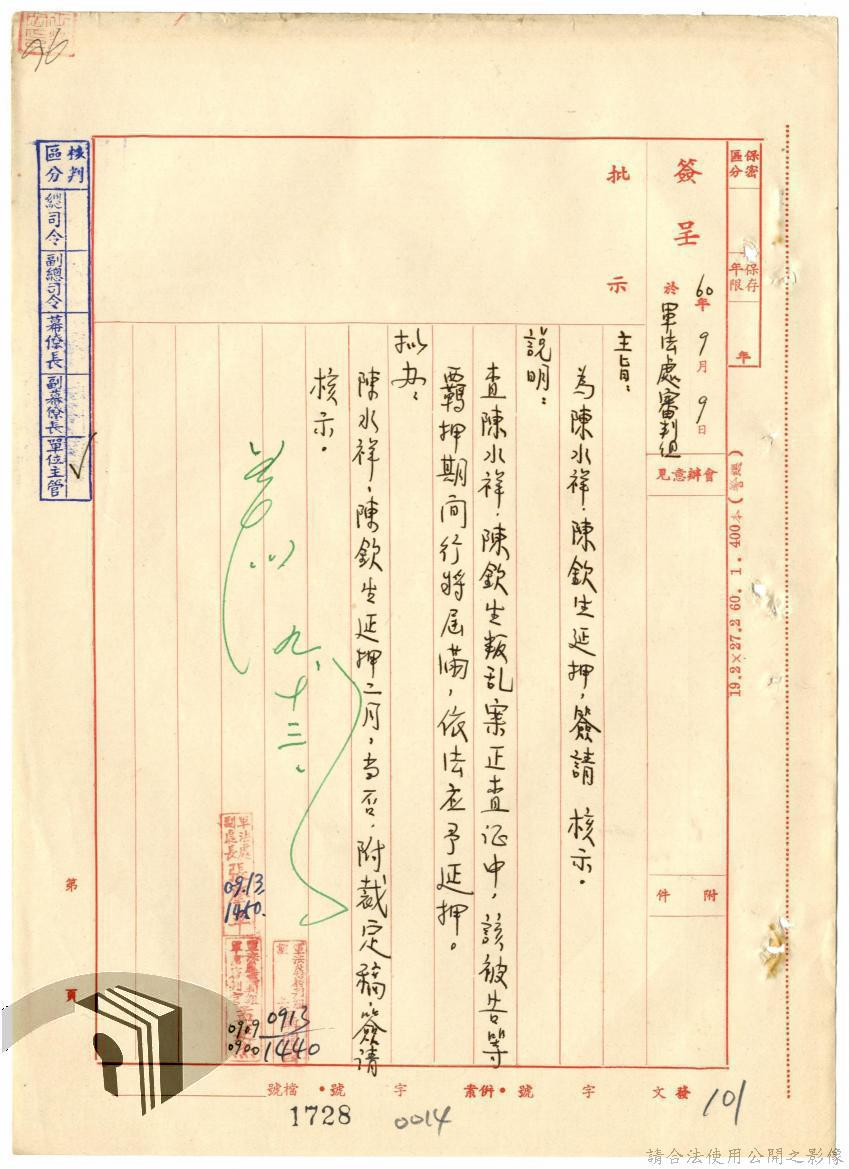 96
保密區分
保存年限
年
19.2×27.2 60. 1. 400本
簽呈
60年9月9日
於軍法處審判組
會辦意見
附件
批示
主旨：
為陳水祥．陳欽生延押，簽請 核示．
說明：
查陳水祥．陳欽生叛乱案正查证中，該被告等
羈押期间行將屆滿，依法应予延押。
拟办：
陳水祥．陳欽生延押二月，当否．附裁定稿．簽請
核示．
九、十三、
軍法處
副處長
09.13.
1450.
0913
1440
0909
0900
核判區分
總司令
副總司令
幕僚長
副幕僚長
單位主管
第
頁
發文 字 號．併案 字 號．檔號
101
1728
0014
請合法使用公開之影像